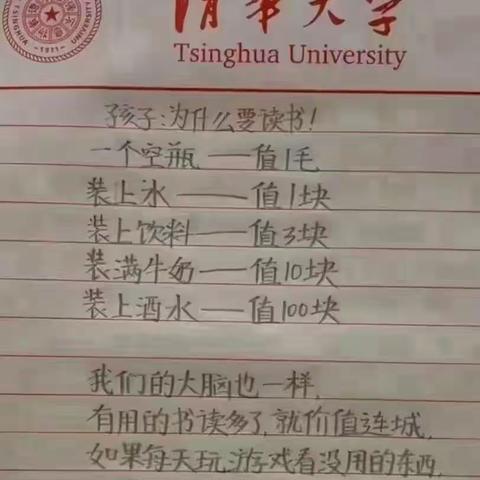 清华大学
Tsinghua University
TSINGHUA UNIVERSITY
-1911-
孩子:为什么要读书!
一个空瓶——值1毛
装上水——值1块
装上饮料——值3块
装满牛奶——值10块
装上酒水——值100块
我们的大脑也一样,
有用的书读多了,就价值连城,
如果每天玩,游戏看没用的东西,